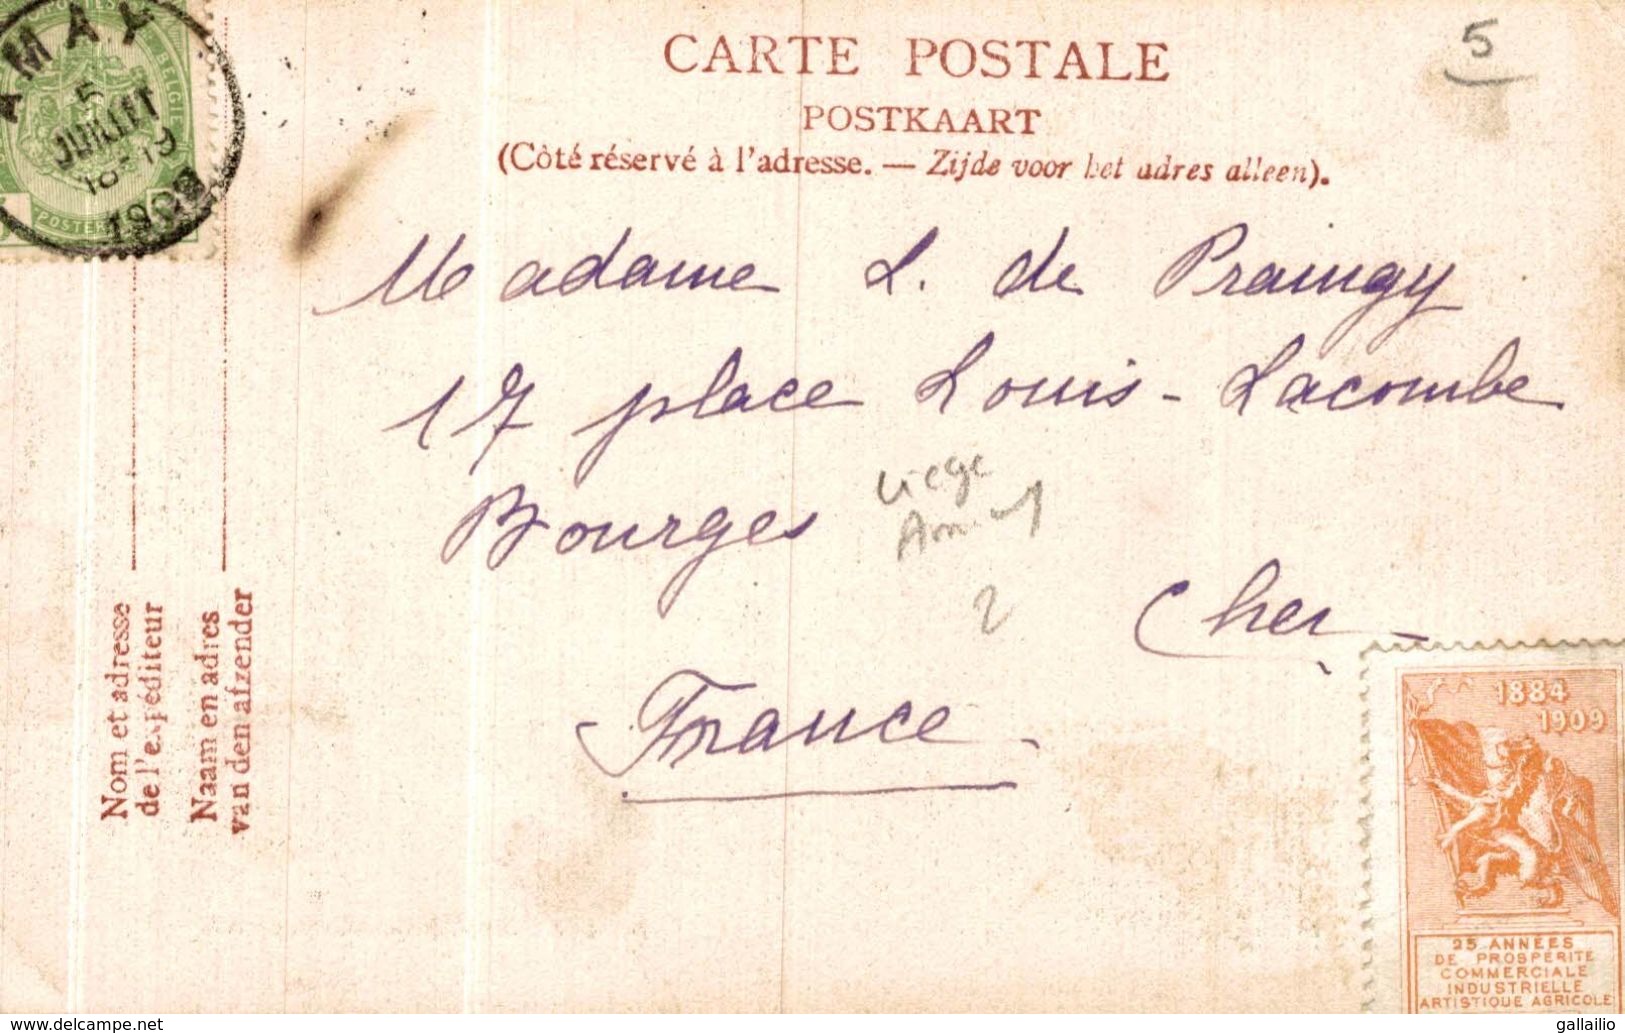 CARTE POSTALE
5
POSTKAART
(Côté réservé à l'adresse. — Zijde voor het adres alleen).
AMAY
5
JUILLET
18-19
BELGIE
POSTERIJ
Madame L. de Praingy
17 place Louis-Lacombe
Bourges
Liege
Amay
2
Cher
France
Nom et adresse
de l'expéditeur
Naam en adres
van den afzender
1884
1909
25 ANNÉES
DE PROSPERITE
COMMERCIALE
INDUSTRIELLE
ARTISTIQUE AGRICOLE
delcampe.net
gallailio